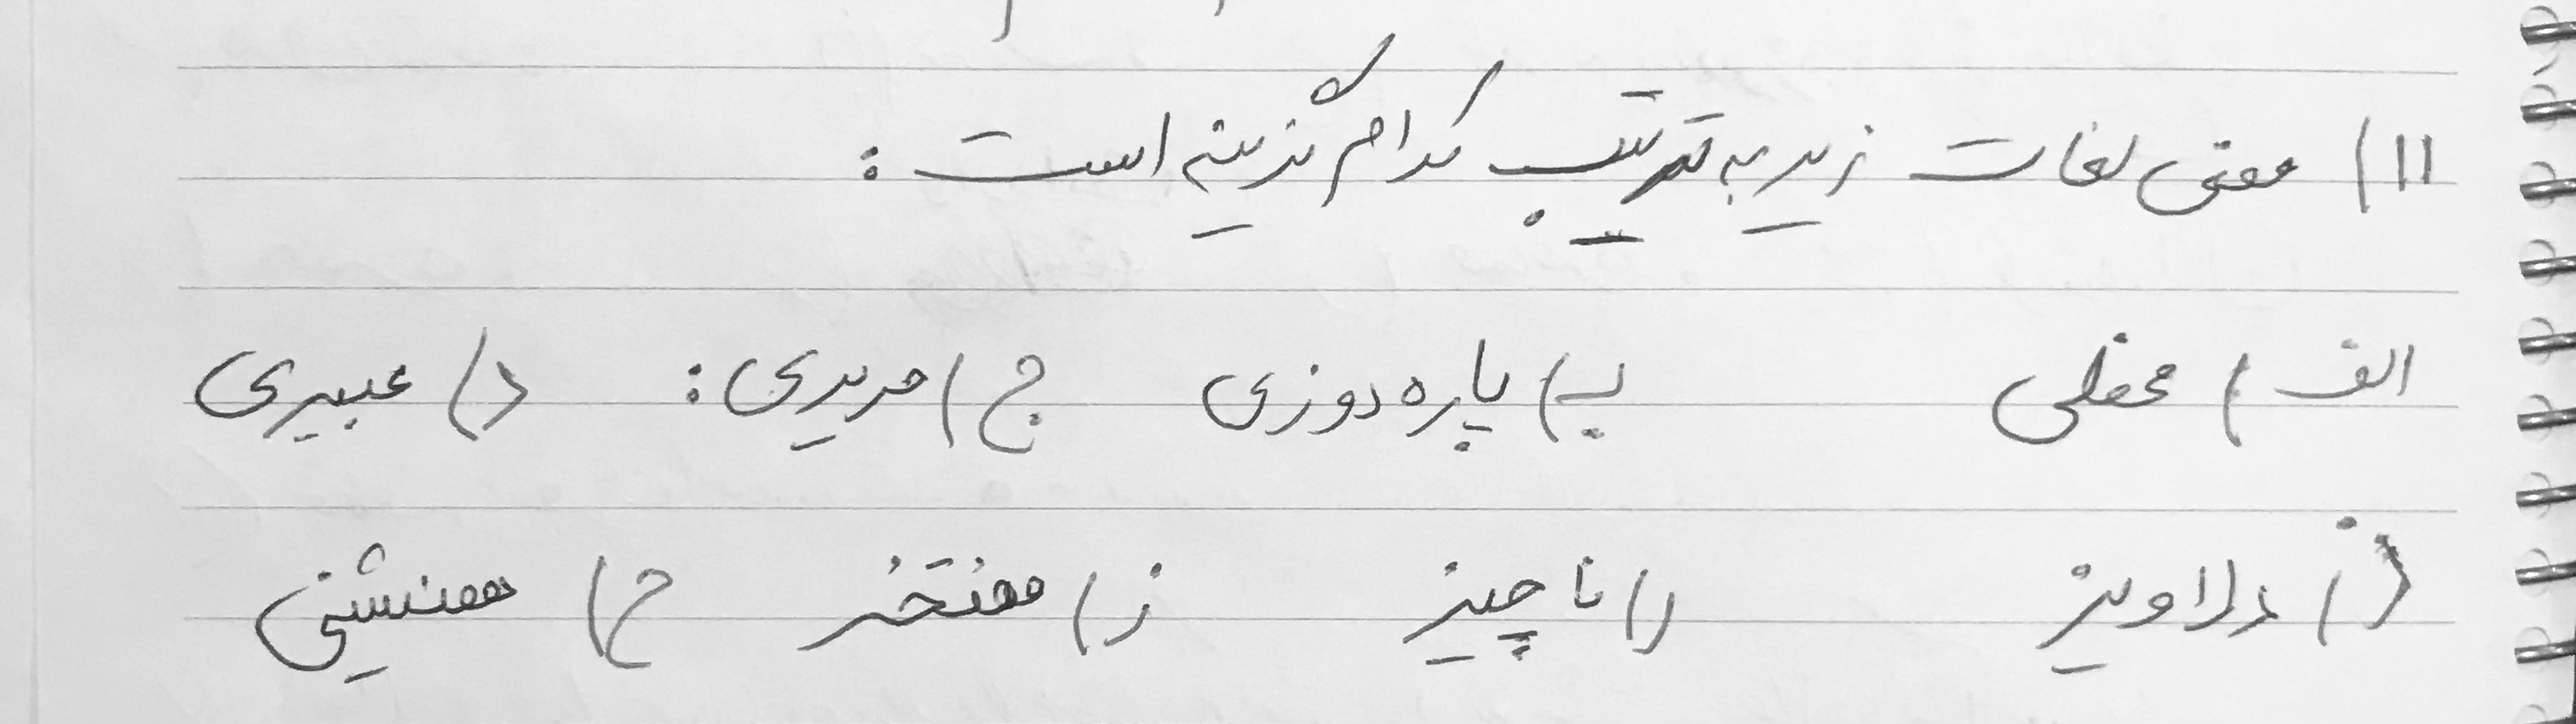 ۱۱) معنی لغات زیر به ترتیب کدام گزینه است :
الف) محفلی ب) پاره دوزی ج) مریدی: د) عبیری
ذ) دلاویز ر) ناچیز ز) مفتخر ح) همنشینی